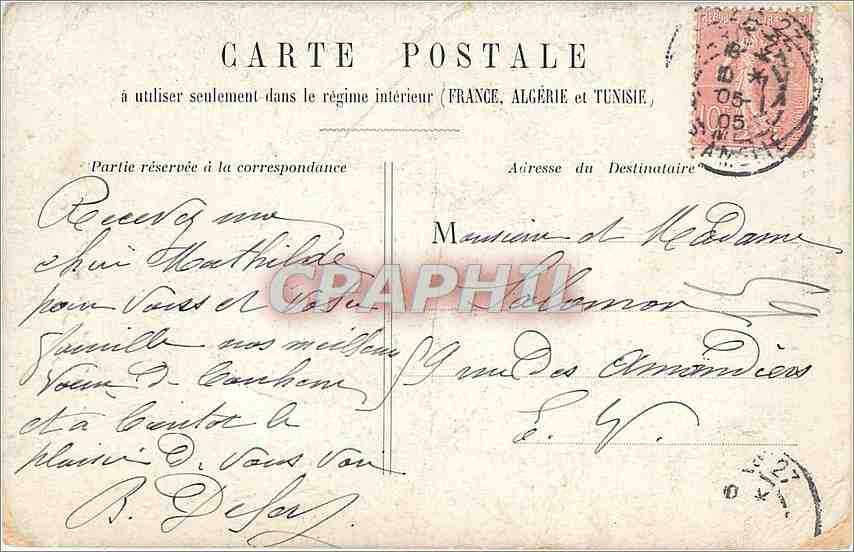 CARTE POSTALE
à utiliser seulement dans le régime intérieur (FRANCE, ALGÉRIE et TUNISIE)
Partie réservée à la correspondance
Recevez ma
chère Mathilde
pour vous et votre
famille nos meilleurs
voeux de bonheur
et à bientôt le
plaisir de vous voir
Adresse du Destinataire
Monsieur et Madame
Salomon
59 rue des Amandiers
E. V.
CRAPHIL
10
05
05
27